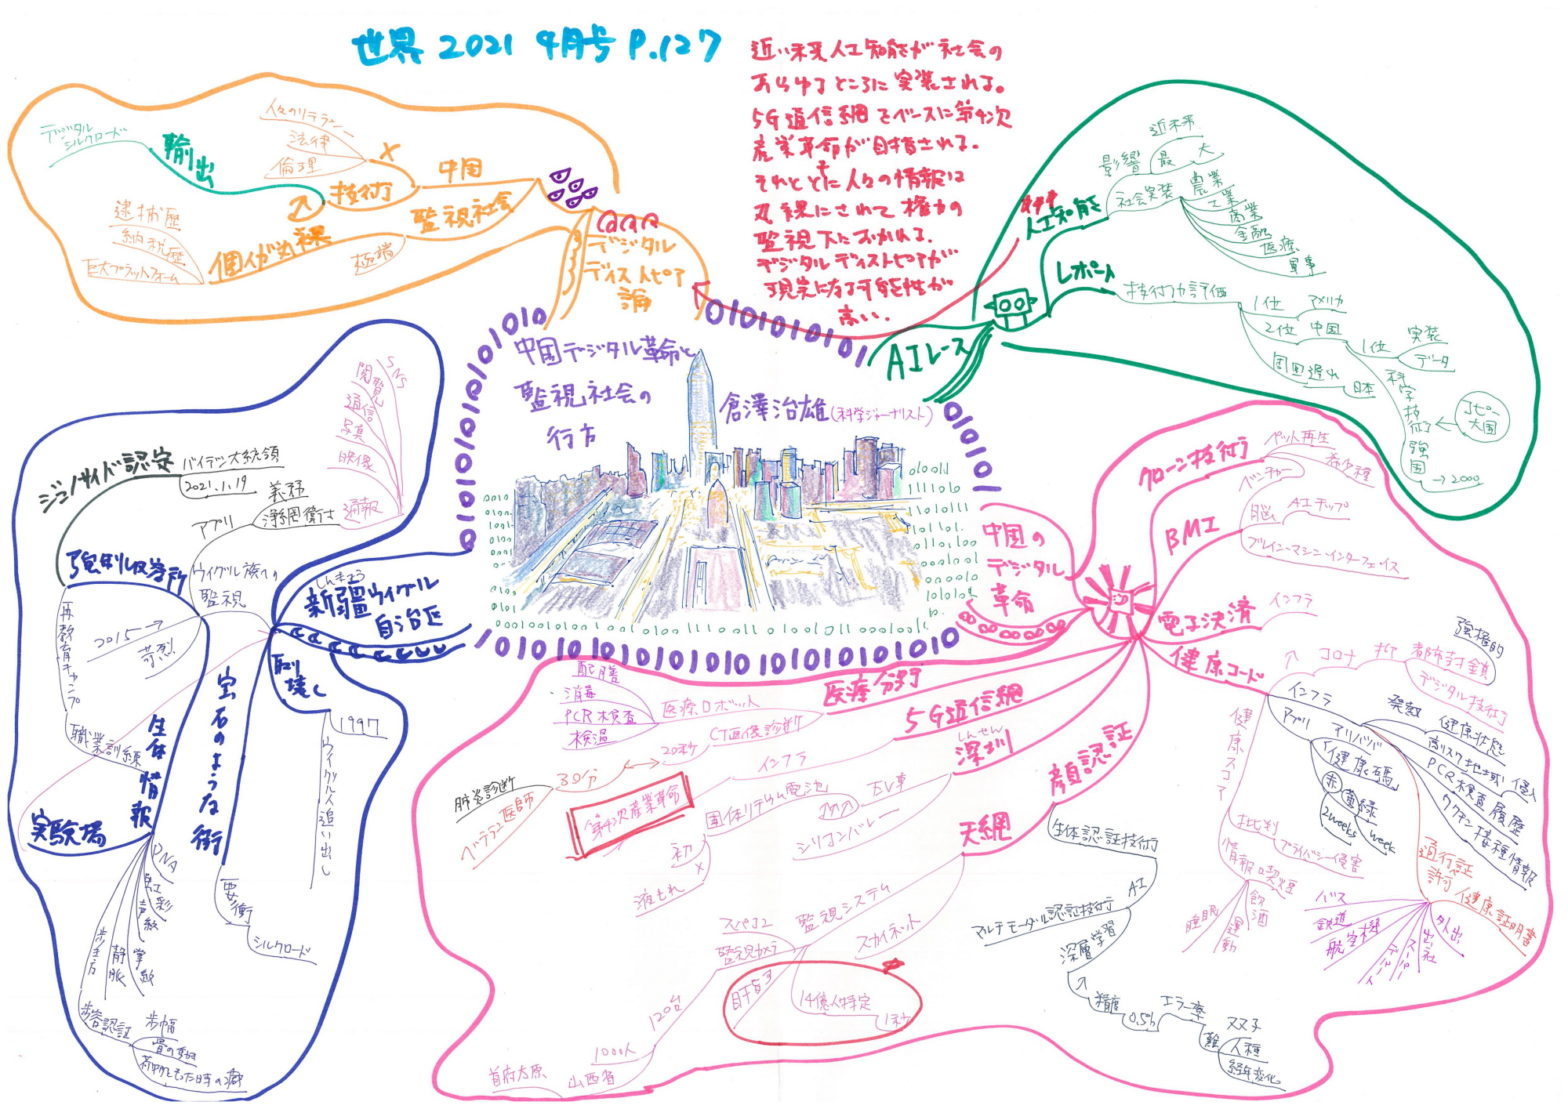 世界 2021 9月号 P.127
近い未来人工知能が社会の
あらゆるところに実装される。
5G通信網をベースに第4次
産業革命が目指される。
それとともに人々の情報は
丸裸にされて権力の
監視下におかれる。
デジタルディストピアが
現実になる可能性が
高い。
中国デジタル革命と
監視社会の
行方
倉澤治雄(科学ジャーナリスト)
デジタル
ディストピア
論
監視社会
中国
技術
×
人々のリテラシー
法律
倫理
輸出
デジタル
シルクロード
個人が丸裸
極端
逮捕歴
納税歴
巨大プラットフォーム
AIレース
人工知能
影響
最
大
近未来
社会実装
農業
工業
商業
金融
医療
軍事
レポート
技術力評価
1位
アメリカ
2位
中国
1位
実装
データ
科学技術強国
→2000
コピー
大国
周回遅れ
日本
中国の
デジタル
革命
クローン技術
ペット再生
希少種
BMI
ベンチャー
脳
AIチップ
ブレイン・マシン・インターフェイス
電子決済
インフラ
健康コード
コロナ
抑
都市封鎖
強権的
デジタル技術
インフラ
アプリ
アリババ
「健康碼」
赤
黄
緑
2weeks
1week
発熱
健康状態
高リスク地域
侵入
PCR検査履歴
ワクチン接種情報
通行証
許可
健康証明書
バス
鉄道
航空機
デパート
スーパー
出社
外出
健康スコア
批判
プライバシー侵害
情報
喫煙
飲酒
運動
睡眠
医療分野
医療ロボット
配膳
消毒
PCR検査
検温
CT画像診断
20秒
30分
肺炎診断
ベテラン医師
5G通信網
インフラ
第4次産業革命
しんせん
深圳
EV車
固体リチウム電池
初
×
液もれ
シリコンバレー
顔認証
生体認証技術
AI
マルチモーダル認証技術
深層学習
精度
0.5%
エラー率
難
双子
人種
経年変化
天網
監視システム
スカイネット
スパコン
監視カメラ
120台
1000人
山西省
首府太原
目指す
14億人特定
1秒
しんきょう
新疆ウイグル
自治区
ウイグル族への
監視
アプリ
浄網衛士
義務
通報
SNS
閲覧
通信
写真
映像
強制収容所
2015→
再教育キャンプ
職業訓練
ジェノサイド認定
バイデン大統領
2021.1.19
実験場
生体情報
DNA
虹彩
声紋
掌紋
静脈
歩き方
歩容認証
歩幅
宝石のような街
要衝
シルクロード
取り壊し
1997
ウイグル人追い出し